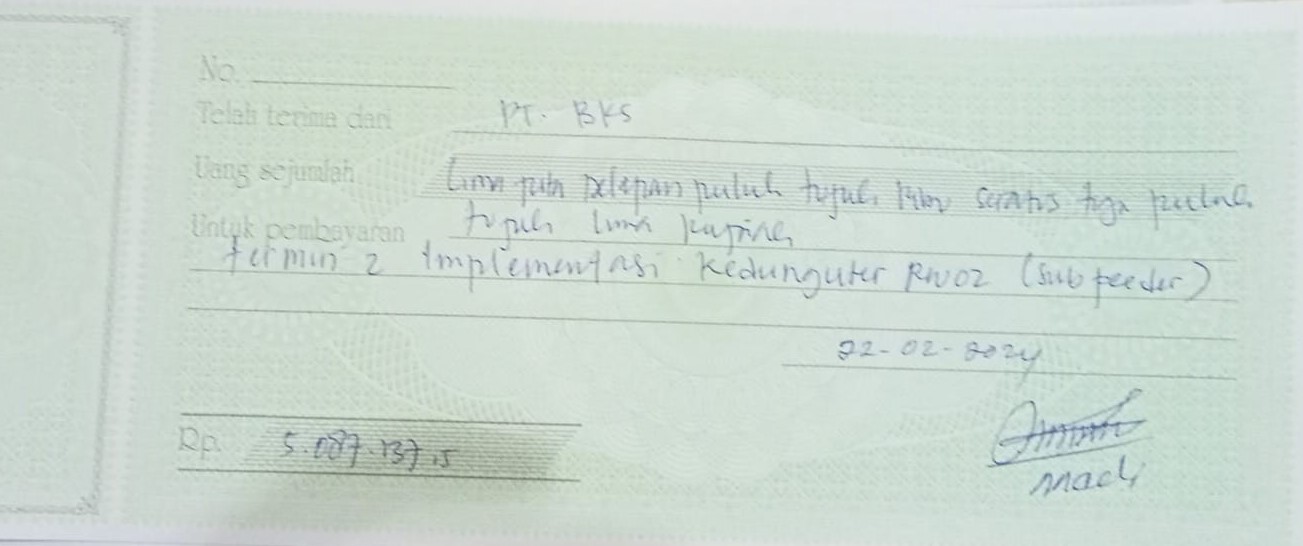 No.
Telah terima dari PT. BKS
Uang sejumlah Lima juta delapan puluh tujuh ribu seratus tiga puluh
tujuh lima rupiah
Untuk pembayaran
termin 2 Implementasi Kedunguter RW02 (sub feeder)
22-02-2024
Rp. 5.087.137,5
Madi